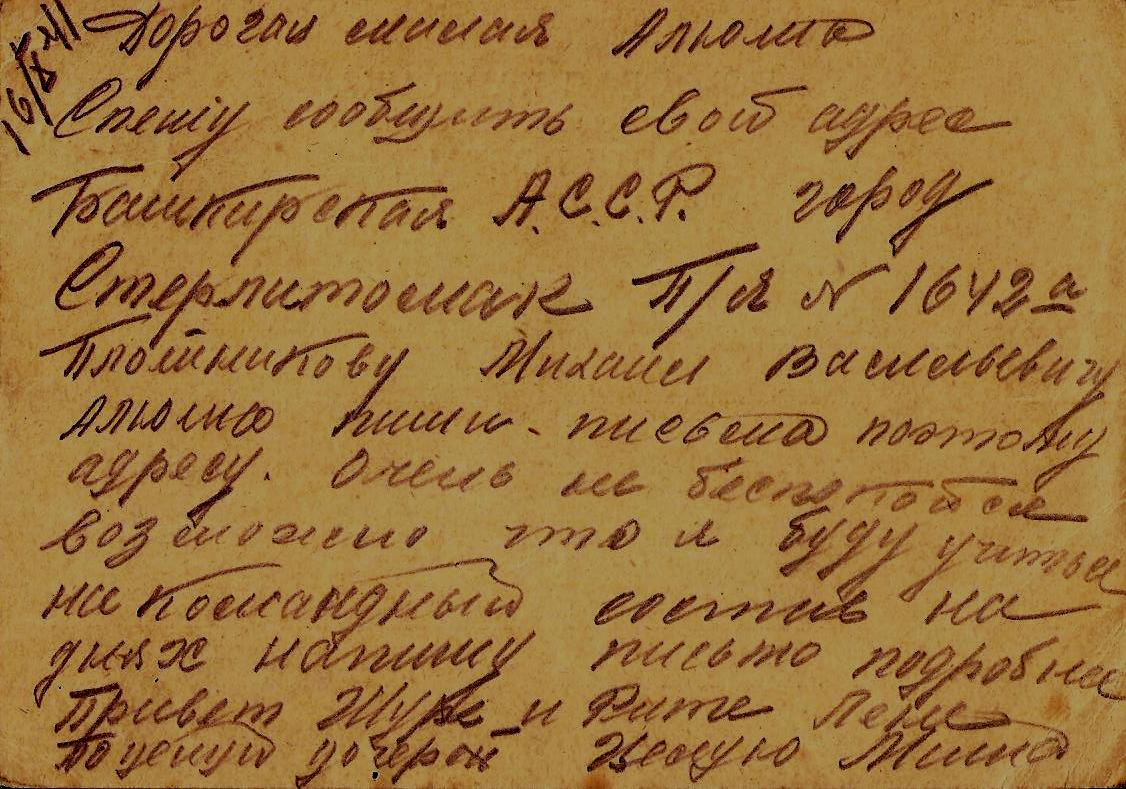 16/X 41
Дорогая милая Алюма
Спешу сообщить свой адрес
Башкирская А.С.С.Р. город
Стерлитомак П/Я N 1642а
Плотникову Михаил Васильевичу
Алюма пиши письма поэтому
адресу. Очень не беспокойся
возможно что я буду учиться
на командный состав на
днях напишу письмо подробнее
Привет Шуре и Рите Лене
Поцелуй дочерей Целую Миша